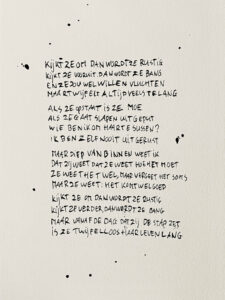 KIJKT ZE OM DAN WORDT ZE RUSTIG
KIJKT ZE VOORUIT DAN WORDT ZE BANG
EN ZE ZOU WEL WILLEN VLUCHTEN
MAAR TWIJFELT ALTIJD VEELS TE LANG
ALS ZE OPSTAAT IS ZE MOE
ALS ZE GAAT SLAPEN UITGEPUT
WIE BEN IK OM HAAR TE SUSSEN?
IK BEN ZELF NOOIT UITGERUST
MAAR DIEP VAN BINNEN WEET IK
DAT ZIJ WEET DAT ZE WEET HOE HET MOET
ZE WEET HET WEL, MAAR VERGEET HET SOMS
MAAR ZE WEET: HET KOMT WEL GOED
KIJKT ZE OM DAN WORDT ZE RUSTIG
KIJKT ZE VERDER, DAN WORDT ZE BANG
MAAR VANAF DE DAG DAT ZIJ DE STAP ZET
IS ZE TWIJFELLOOS HAAR LEVEN LANG